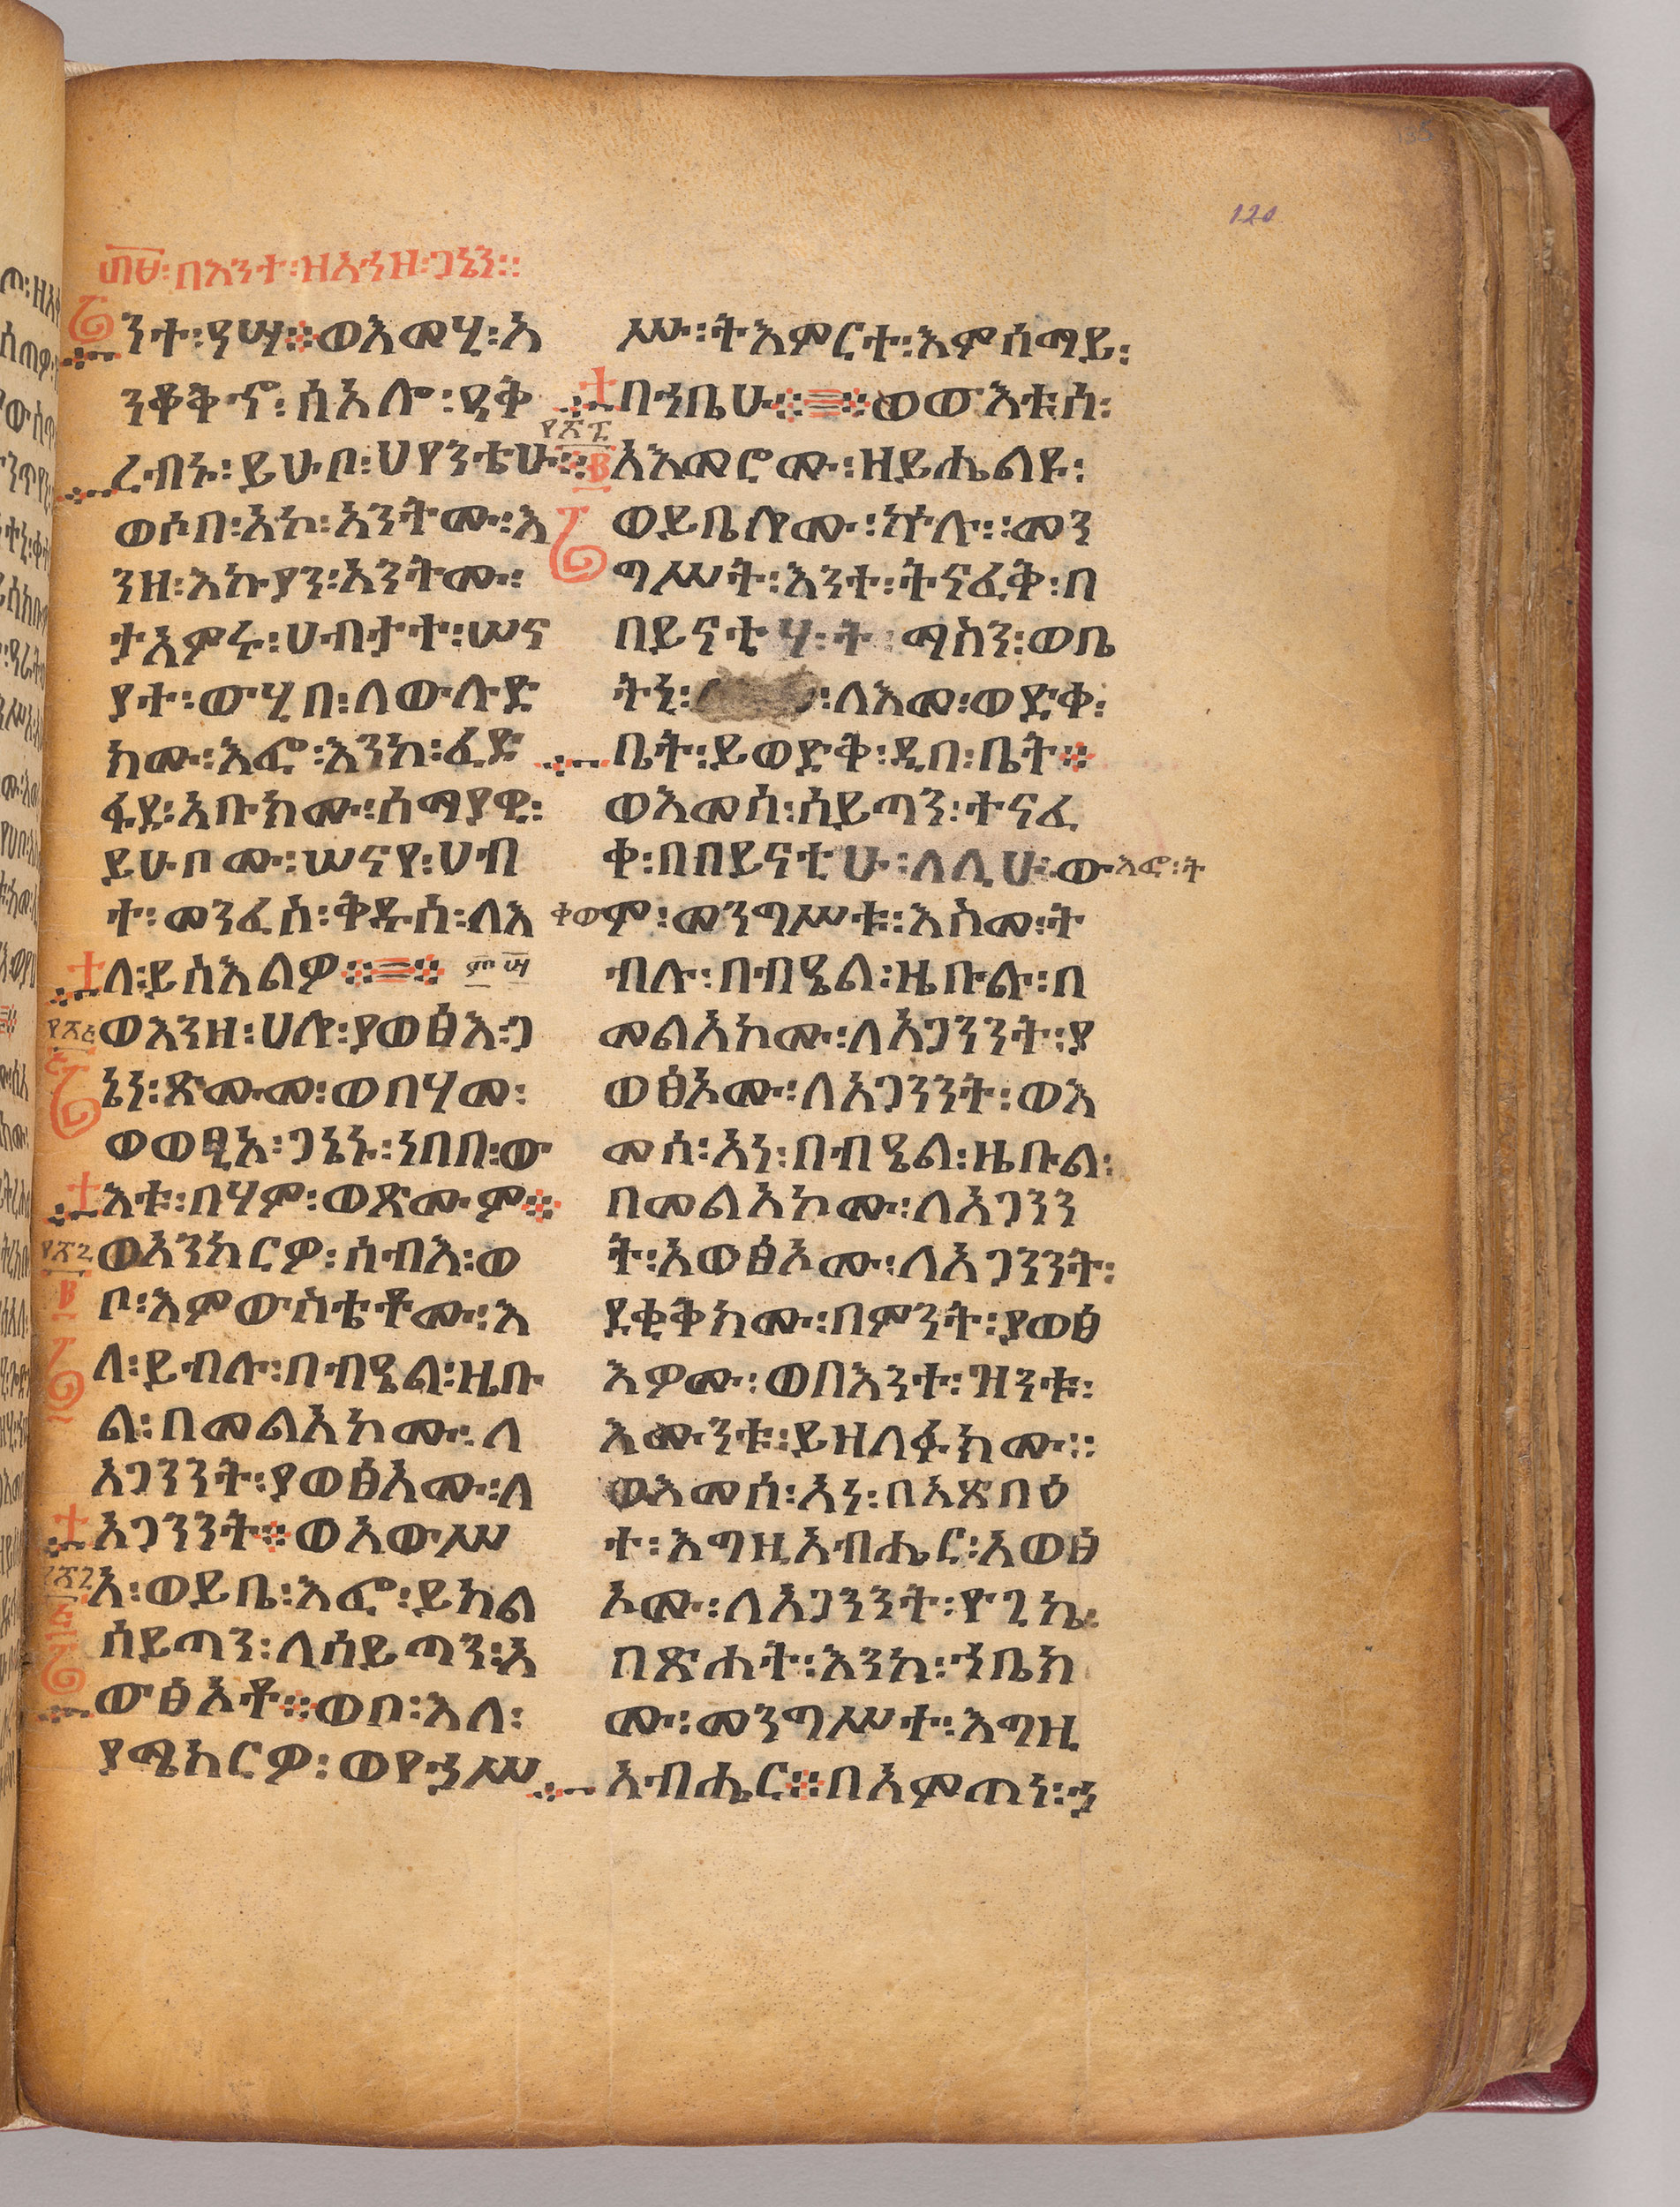 120
፵፡ በእንተ፡ዘአኀዘ፡ጋኔን።
ንተ፡ዓሣ። ወእመሂ፡አ
ንቆቅሖ፡ሰአሎ፡ዒቅ
ረብኑ፡ይሁቦ፡ህየንቴሁ።
ወሶበ፡እኮ፡አንትሙ፡እ
ንዘ፡እኩያን፡አንትሙ፡
ታአምሩ፡ሀብታተ፡ሠና
ያተ፡ውሂበ፡ለውሉድ
ክሙ፡እፎ፡እንከ፡ፈድ
ፋደ፡አቡክሙ፡ሰማያዊ፡
ይሁቦሙ፡ሠናየ፡ሀብ
ተ፡መንፈሰ፡ቅዱሰ፡ለእ
ለ፡ይስእልዎ። ምሣ
ወእንዘ፡ሀሎ፡ያወፅእ፡ጋ
ኔነ፡ጽሙመ፡ወበሃመ፡
ወወፂኦ፡ጋኔኑ፡ነበበ፡ው
እቱ፡በሃም፡ወጽሙም።
ወአንከርዎ፡ሰብእ፡ወ
ቦ፡እምውስቴቶሙ፡እ
ለ፡ይብሉ፡በብዔል፡ዜቡ
ል፡በመልአኮሙ፡ለ
አጋንንት፡ያወፅኦሙ፡ለ
አጋንንት። ወአውሥ
አ፡ወይቤ፡እፎ፡ይክል
ሰይጣን፡ለሰይጣን፡አ
ውፅኦቶ። ወቦ፡እለ፡
ያሜክርዎ፡ወየኀሥ
ሡ፡ትእምርተ፡እምሰማይ፡
በኀቤሁ። ወውእቱሰ፡
አእመሮሙ፡ዘይሔልዩ፡
ወይቤሎሙ፡ኵሉ፡መን
ግሥት፡እንተ፡ትናፈቅ፡በ
በይናቲሃ፡ት፡ማስን፡ወቤ
ትኒ፡ ፡ለእመ፡ወድቀ፡
ቤት፡ይወድቅ፡ዲበ፡ቤት።
ወእመሰ፡ሰይጣን፡ተናፈ
ቀ፡በበይናቲሁ፡ለሊሁ፡ው እፎ፡ት
ቀወም፡መንግሥቱ፡እስመ፡ት
ብሉ፡በብዔል፡ዜቡሉ፡በ
መልአኮሙ፡ለአጋንንት፡ያ
ወፅኦሙ፡ለአጋንንት፡ወእ
መሰ፡አነ፡በብዔል፡ዜቡል፡
በመልአኮሙ፡ለአጋንን
ት፡አወፅኦሙ፡ለአጋንንት፡
ደቂቅክሙ፡በምንት፡ያወፅ
እዎሙ፡ወበእንተ፡ዝንቱ፡
እሙንቱ፡ይዘለፉክሙ።
ወእመሰ፡አነ፡በአጽበዕ
ተ፡እግዚአብሔር፡አወፅ
ኦሙ፡ለአጋንንት፡ዮጊኬ፡
በጽሐት፡እንከ፡ኀቤክ
ሙ፡መንግሥተ፡እግዚ
አብሔር። በአምጣነ፡ኀ